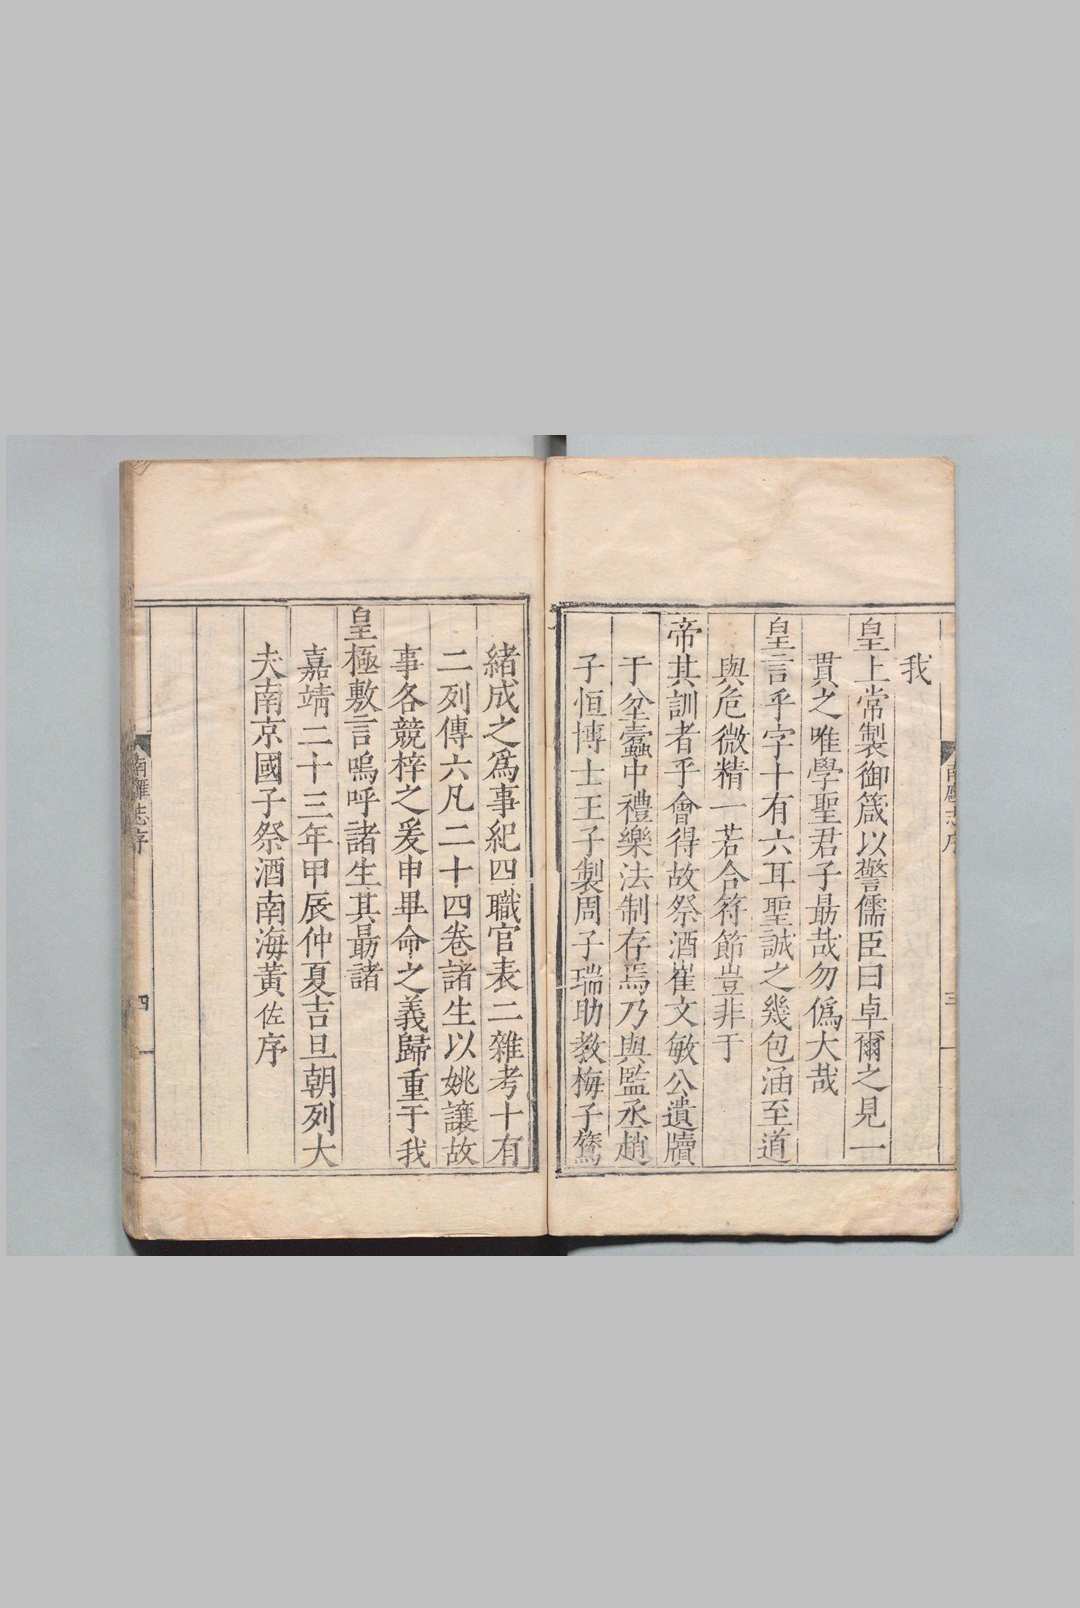 我
皇上常製御箴以警儒臣曰卓爾之見一
貫之唯學聖君子勗哉勿偽大哉
皇言乎字十有六耳聖誠之幾包涵至道
與危微精一若合符節豈非于
帝其訓者乎會得故祭酒崔文敏公遺牘
于坌蠹中禮樂法制存焉乃與監丞趙
子恒博士王子製周子瑞助教梅子鷟
緒成之為事紀四職官表二雜考十有
二列傳六凡二十四卷諸生以姚讓故
事各競梓之爰申畢命之義歸重于我
皇極敷言嗚呼諸生其勗諸
嘉靖二十三年甲辰仲夏吉旦朝列大
夫南京國子祭酒南海黃佐序
南雝志序
四